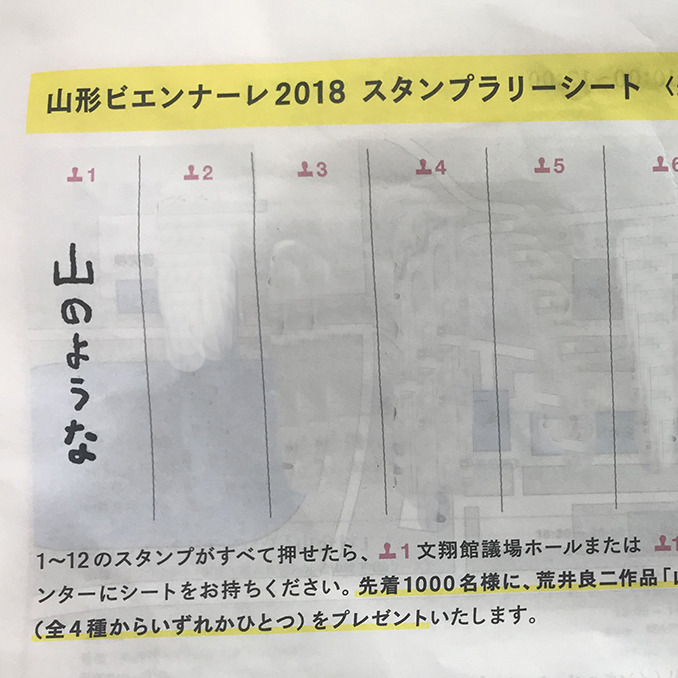 山形ビエンナーレ2018 スタンプラリーシート
1
2
3
4
5
6
山のような
1〜12のスタンプがすべて押せたら、1文翔館議場ホールまたは
ンターにシートをお持ちください。先着1000名様に、荒井良二作品「
(全4種からいずれかひとつ)をプレゼントいたします。